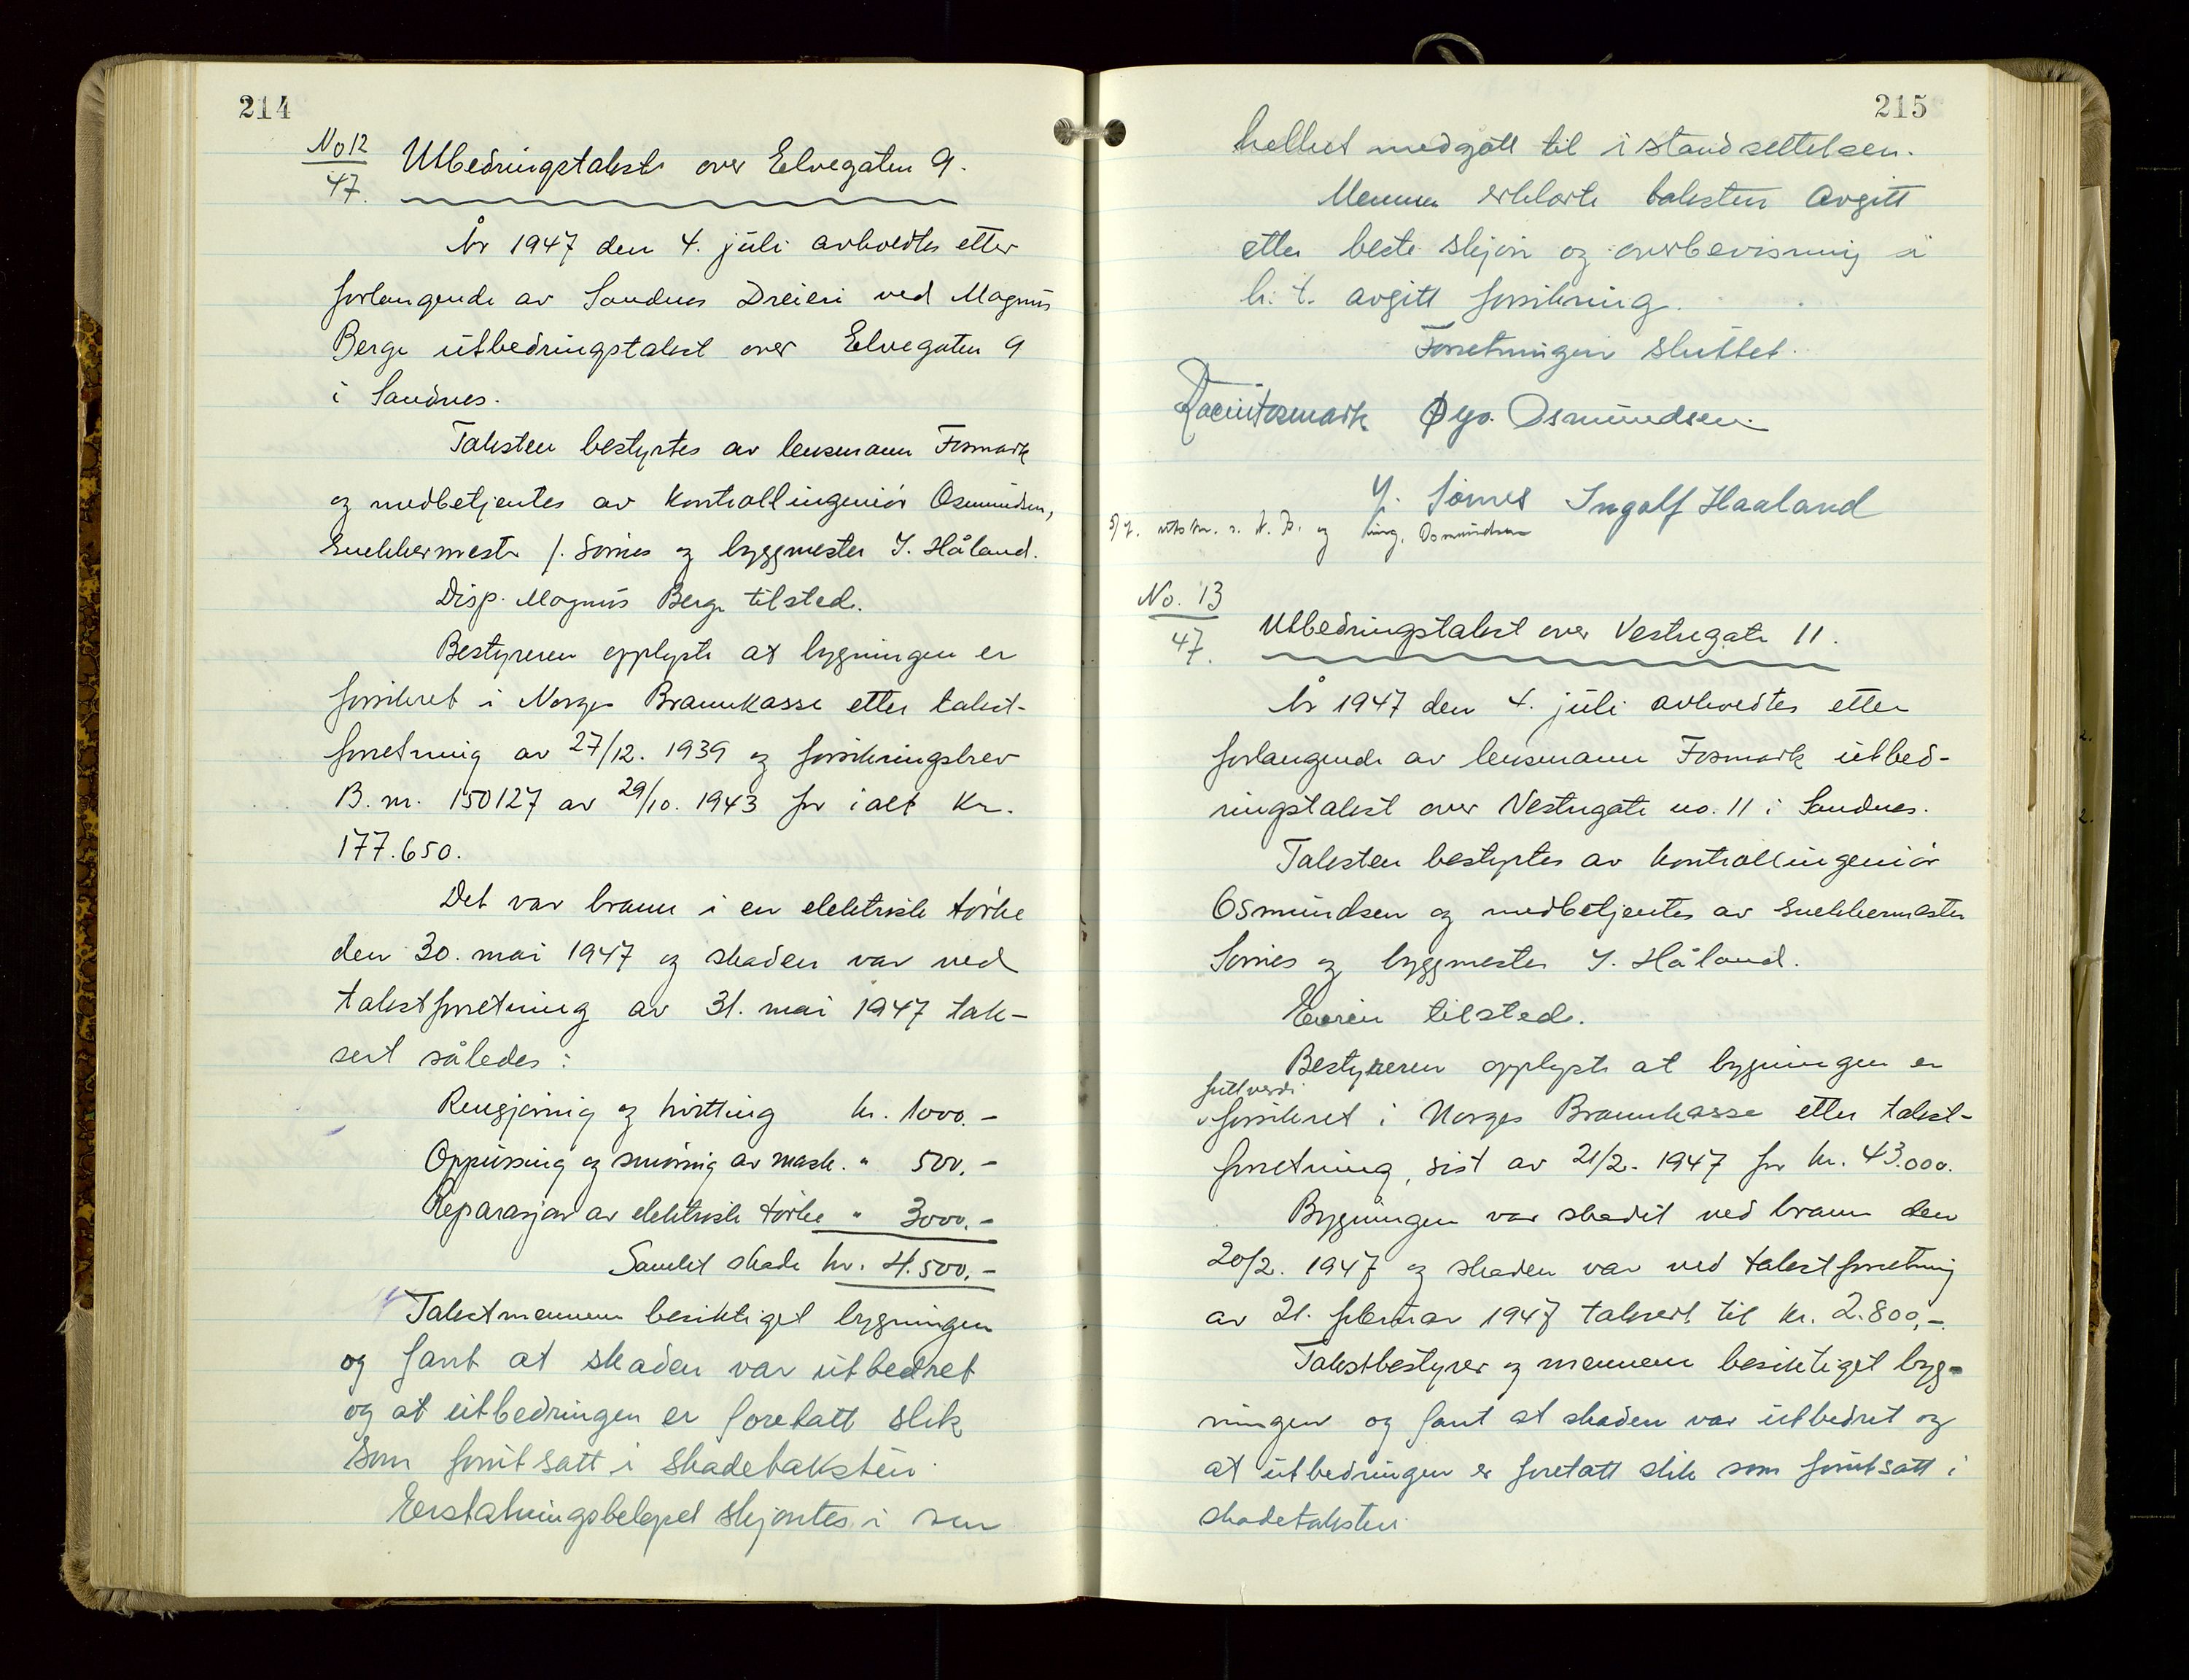 214
No 12
47.
Utbedringstakst over Elvegaten 9.
År 1947 den 4. juli avholdtes etter
forlangende av Sandnes Dreieri ved Magnus
Berge utbedringstakst over Elvegaten 9
i Sandnes.
Taksten bestyrtes av lensmann Fosmark
og medbetjentes av kontrollingeniør Osmundsen,
snekkermester J. Sømes og byggmester I. Håland.
Disp. Magnus Berge tilstede.
Bestyreren opplyste at bygningen er
forsikret i Norges Brannkasse etter takst-
forretning av 27/12. 1939 og forsikringsbrev
B. nr. 150127 av 29/10. 1943 for ialt kr.
177.650.
Det var brann i en elektrisk tørke
den 30. mai 1947 og skaden var ved
takstforretning av 31. mai 1947 tak-
sert således:
Rengjøring og hvitting kr. 1000.-
Oppussing og smøring av mask. " 500.-
Reparasjon av elektrisk tørke " 3000.-
Samlet skade kr. 4.500.-
Takstmennene besiktiget bygningen
og fant at skaden var utbedret
og at utbedringen er foretatt slik
som forutsatt i skadetaksten.
Erstatningsbeløpet skjøntes i sin
215
helhet medgått til istandsettelsen.
Mennene erklærte taksten avgitt
etter beste skjønn og overbevisning i
h. t. avgitt forsikring.
Forretningen sluttet.
Fosmark Øyv. Osmundsen.
J. Sømes Ingolf Haaland
utskr. s. N. B. og ing. Osmundsen
No. 13
47.
Utbedringstakst over Vestregate 11.
År 1947 den 4. juli avholdtes etter
forlangende av lensmann Fosmark utbed-
ringstakst over Vestregate no. 11 i Sandnes.
Taksten bestyrtes av kontrollingeniør
Osmundsen og medbetjentes av snekkermester
Sømes og byggmester I. Håland.
Eieren tilstede.
Bestyreren opplyste at bygningen er
fullverdi
forsikret i Norges Brannkasse etter takst-
forretning, sist av 21/2. 1947 for kr. 43.000.
Bygningen var skadet ved brann den
20/2. 1947 og skaden var ved takstforretning
av 21. februar 1947 taksert til kr. 2.800,-.
Takstbestyrer og mennene besiktiget byg-
ningen og fant at skaden var utbedret og
at utbedringen er foretatt slik som forutsatt i
skadetaksten.